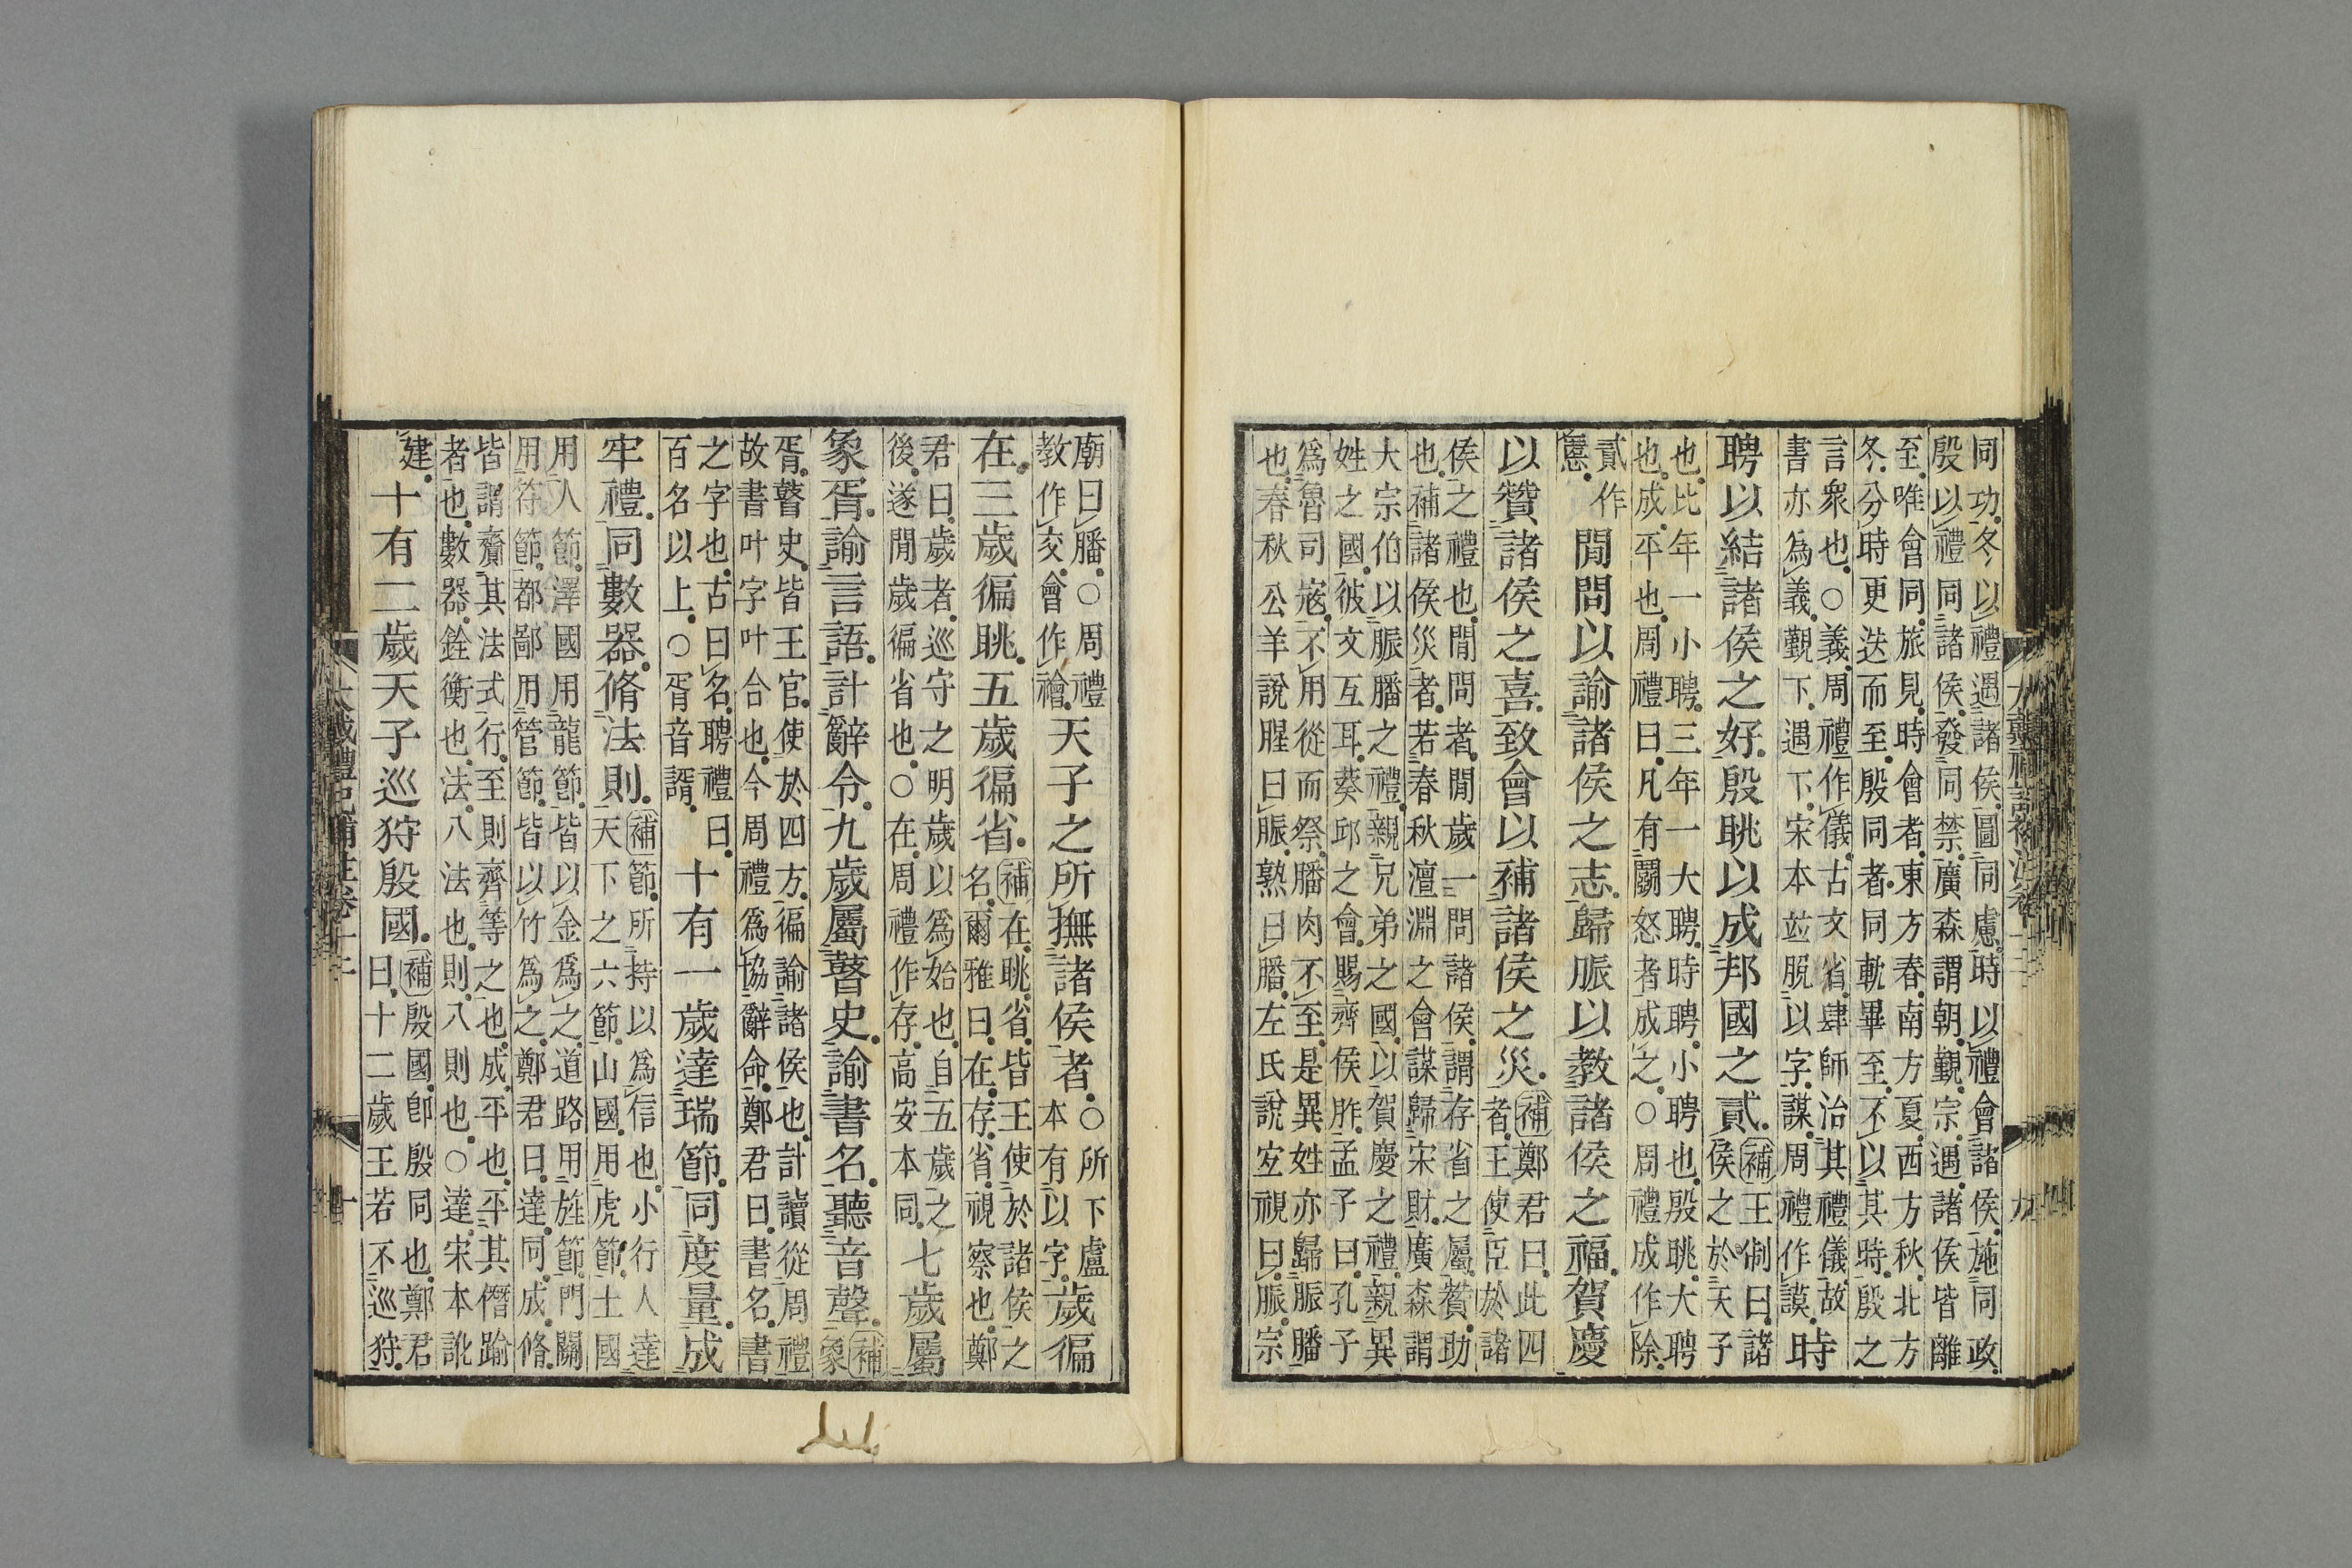 大戴禮記補注卷十二 九
同功冬以禮遇諸侯圖同慮時以禮會諸侯施同政
殷以禮同諸侯發同禁廣森謂朝覲宗遇諸侯皆離
至唯會同旅見時會者東方春南方夏西方秋北方
冬分時更迭而至殷同者同軌畢至不以其時殷之
言衆也○義周禮作儀古文省肆師治其禮儀故
書亦為義覲下遇下宋本竝脫以字謀周禮作謨
時
聘以結諸侯之好殷眺以成邦國之貳
補王制曰諸
侯之於天子
也比年一小聘三年一大聘時聘小聘也殷眺大聘
也成平也周禮曰凡有鬭怒者成之○周禮成作除
貳作
慝
閒問以諭諸侯之志歸脤以教諸侯之福賀慶
以贊諸侯之喜致會以補諸侯之災
補鄭君曰此四
者王使臣於諸
侯之禮也閒問者閒歲一問諸侯謂存省之屬贊助
也補諸侯災者若春秋澶淵之會謀歸宋財廣森謂
大宗伯以脤膰之禮親兄弟之國以賀慶之禮親異
姓之國彼文互耳葵邱之會賜齊侯胙孟子曰孔子
爲魯司寇不用從而祭膰肉不至是異姓亦歸脤膰
也春秋公羊說腥曰脤熟曰膰左氏說宜視曰脤宗
廟曰膰○周禮
教作交會作禬
天子之所撫諸侯者
○所下盧
本有以字
歲徧
在三歲徧眺五歲徧省
補在眺省皆王使於諸侯之
名爾雅曰在存省視察也鄭
君曰歲者巡守之明歲以為始也自五歲之
後遂閒歲徧省也○在周禮作存高安本同
七歲屬
象胥諭言語計辭令九歲屬瞽史諭書名聽音聲
補
象
胥瞽史皆王官使於四方徧諭諸侯也計讀從周禮
故書叶字叶合也今周禮為協辭命鄭君曰書名書
之字也古曰名聘禮曰
百名以上○胥音諝
十有一歲達瑞節同度量成
牢禮同數器脩法則
補節所持以為信也小行人達
天下之六節山國用虎節土國
用人節澤國用龍節皆以金為之道路用旌節門關
用符節都鄙用管節皆以竹為之鄭君曰達同成脩
皆謂齎其法式行至則齊等之也成平也平其僭踰
者也數器銓衡也法八法也則八則也○達宋本訛
建
十有二歲天子巡狩殷國
補殷國卽殷同也鄭君
曰十二歲王若不巡狩
大戴禮記補注卷十二 十